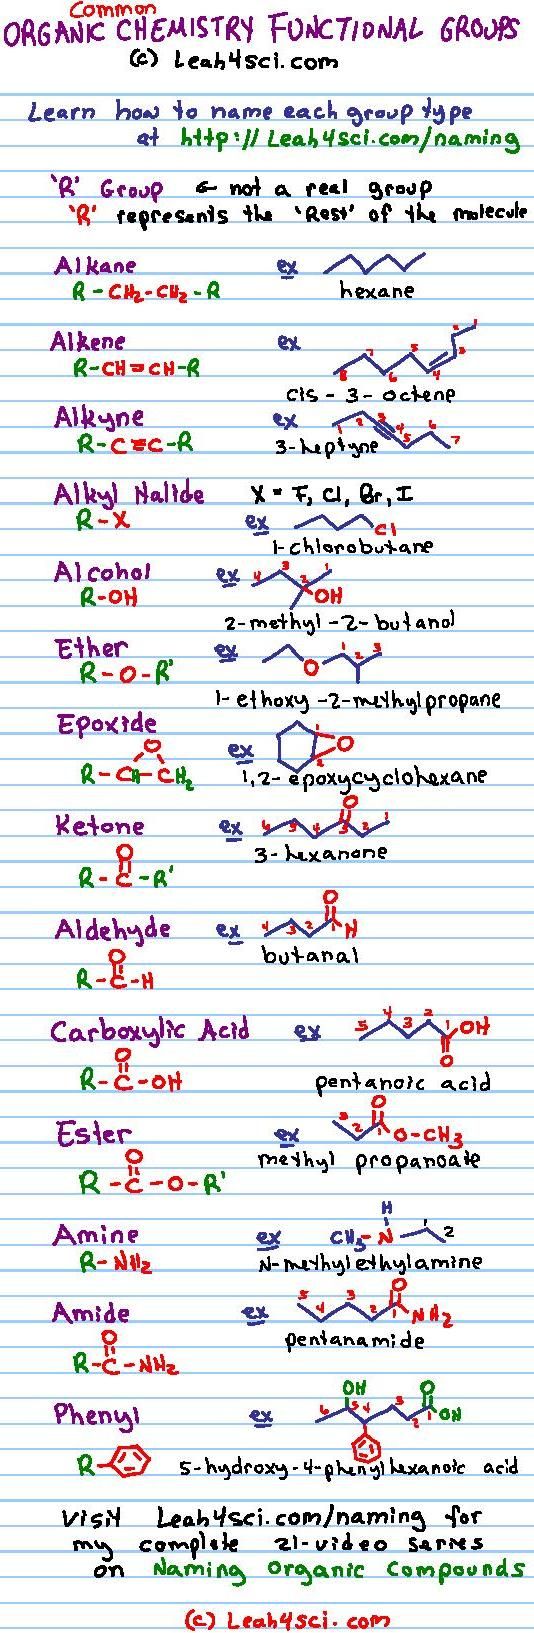 Common
ORGANIC CHEMISTRY FUNCTIONAL GROUPS
(c) Leah4sci.com
Learn how to name each group type
at http://Leah4sci.com/naming
'R' Group ← not a real group
'R' represents the 'Rest' of the molecule
Alkane ex
R-CH₂-CH₂-R hexane
Alkene ex 1 2 3 4 5 6 7 8
R-CH=CH-R
cis-3-octene
Alkyne ex 1 2 3 4 5 6 7
R-C≡C-R 3-heptyne
Alkyl Halide X = F, Cl, Br, I
R-X ex Cl
1-chlorobutane
Alcohol ex 4 3 2 1
R-OH OH
2-methyl-2-butanol
Ether ex 1 2 3
R-O-R' O
1-ethoxy-2-methylpropane
Epoxide O ex 1 O
R-CH-CH₂ 2
1,2-epoxycyclohexane
Ketone ex 6 5 4 3 2 1 O
O 3-hexanone
R-C-R'
Aldehyde ex 4 3 2 1 O H
O butanal
R-C-H
Carboxylic Acid ex 5 4 3 2 1 OH
O O
R-C-OH pentanoic acid
Ester ex 3 2 1 O O-CH3
O methyl propanoate
R-C-O-R'
H
Amine ex CH3-N 1 2
R-NH₂ N-methylethylamine
Amide ex 5 4 3 2 1 O NH₂
O pentanamide
R-C-NH₂
OH O
Phenyl ex 6 5 4 3 2 1 OH
R- 5-hydroxy-4-phenylhexanoic acid
Visit Leah4sci.com/naming for
my complete 21-video series
on Naming Organic Compounds
(c) Leah4sci.com